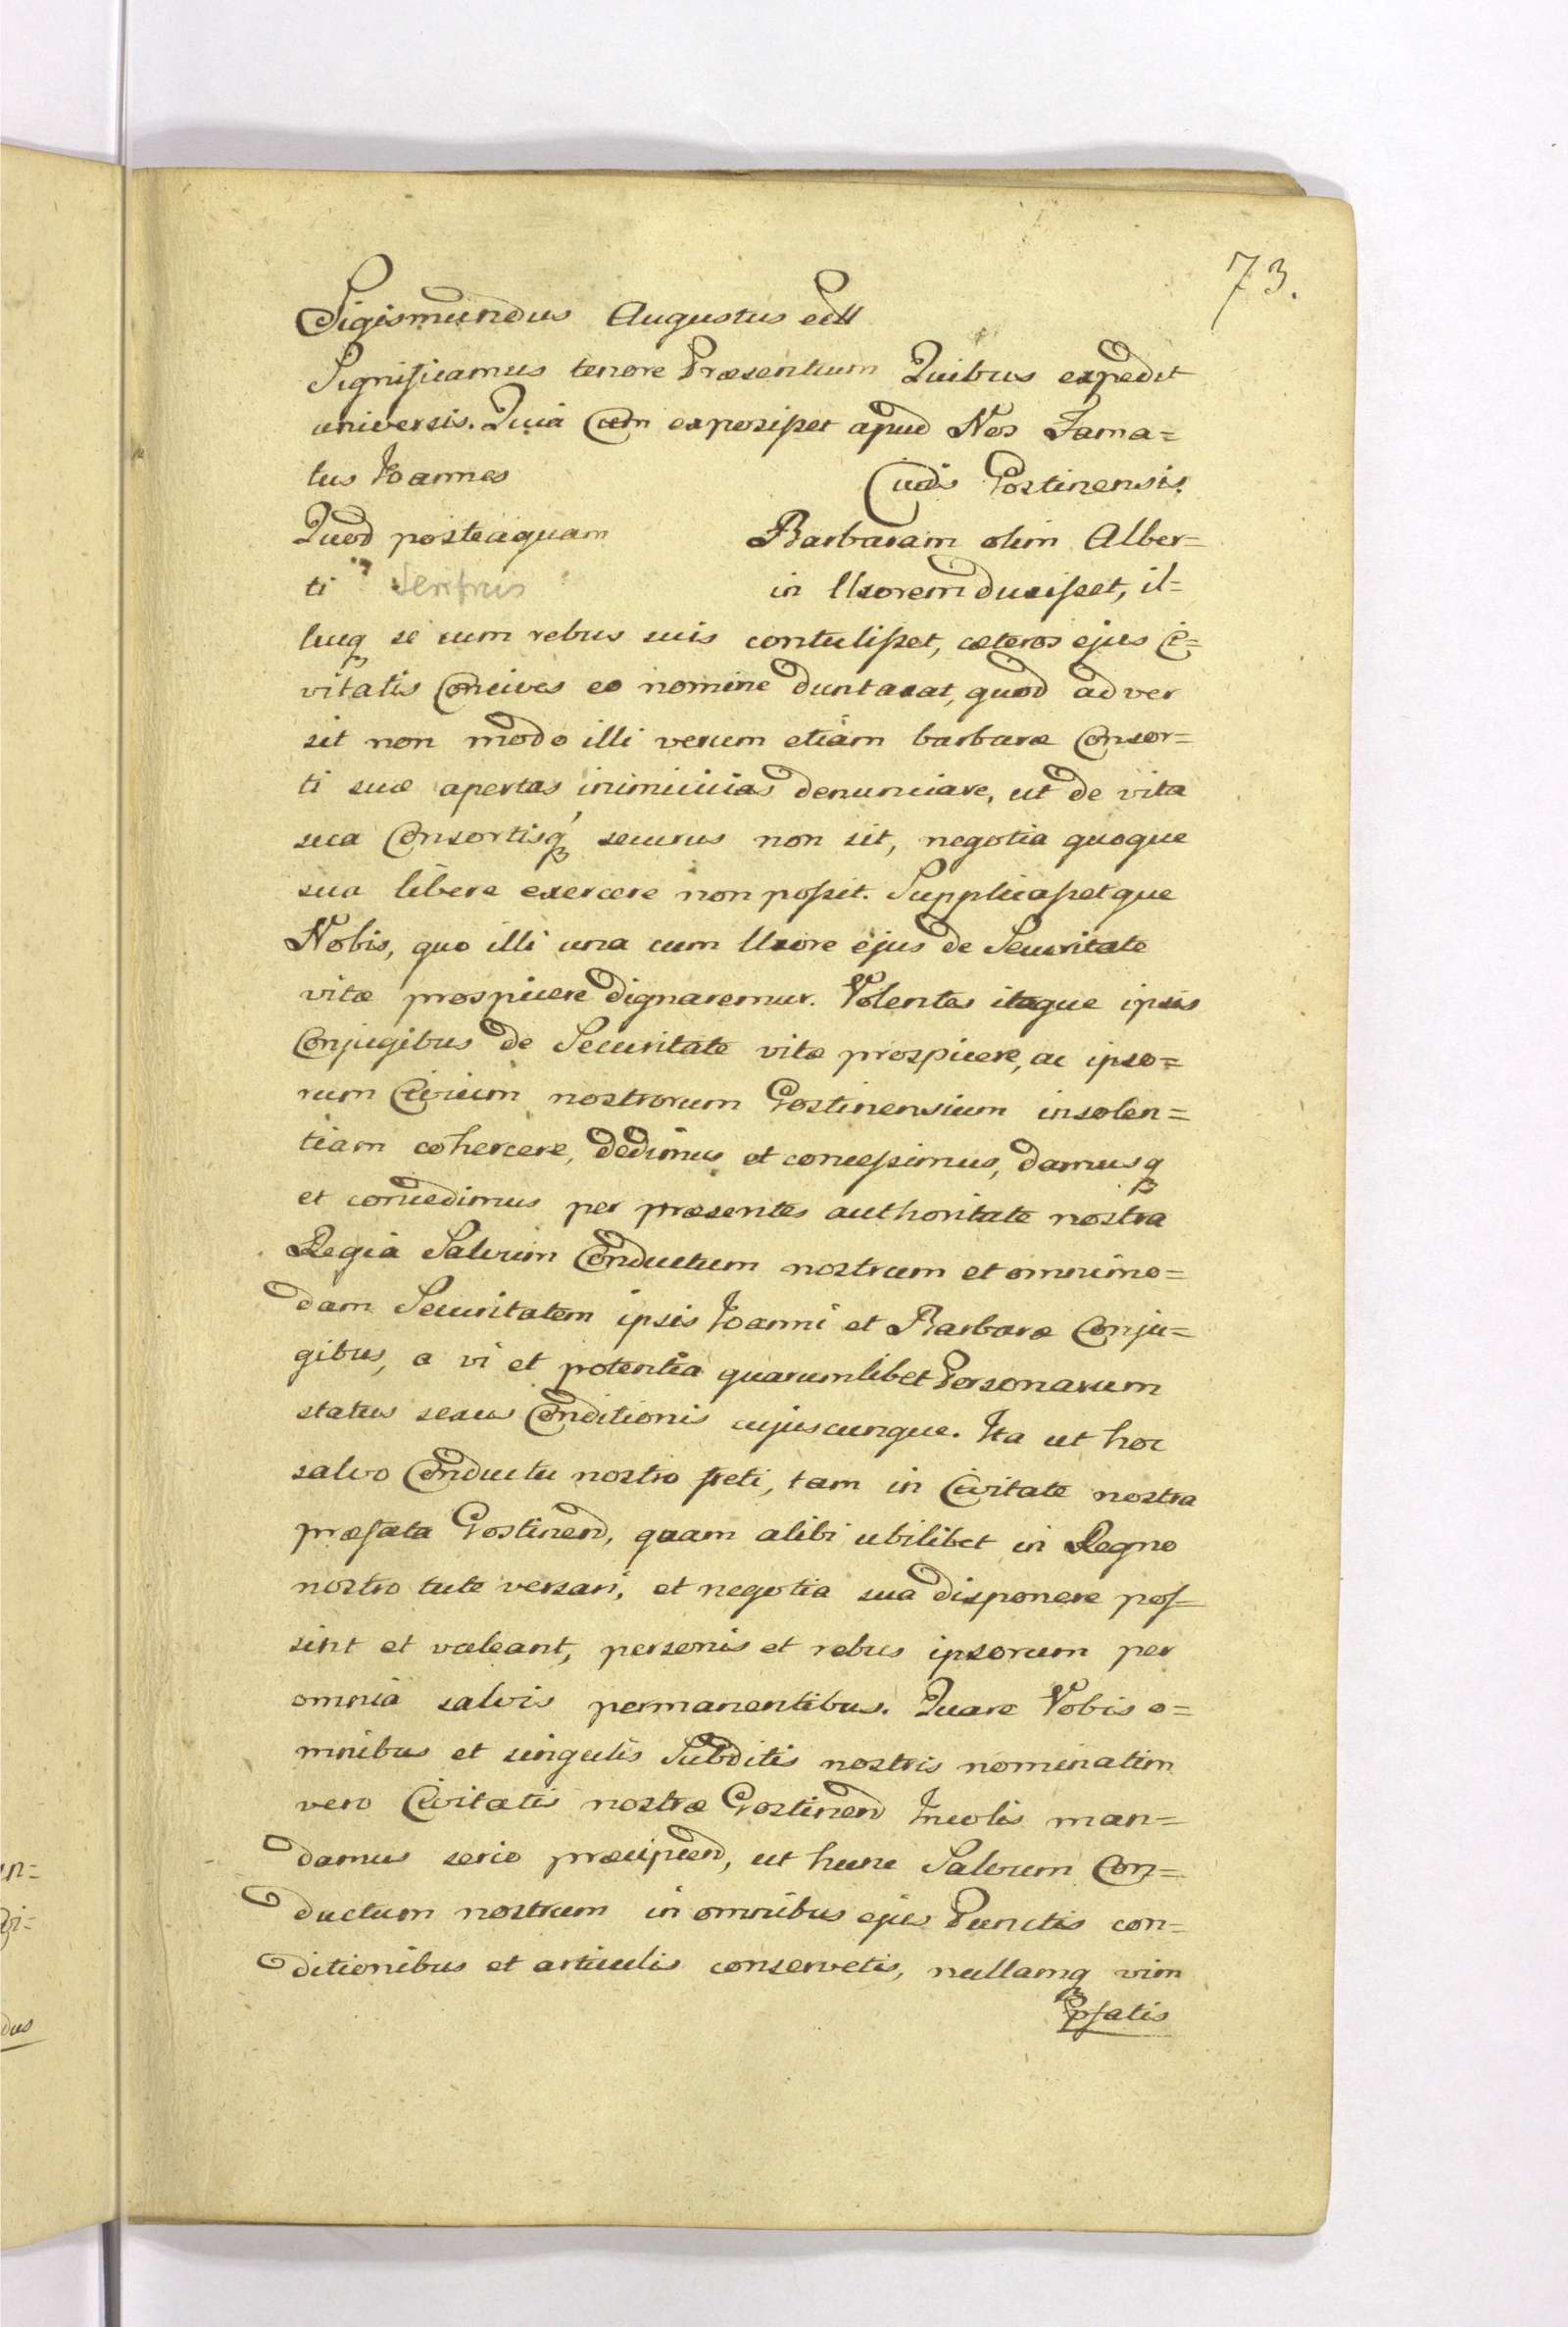 73.
Sigismundus Augustus ect
Significamus tenore Præsentium Quibus expedit
universis. Quia Cum exposißet apud Nos Fama=
tus Ioannes Civis Gostinensis.
Quod posteaquam Barbaram olim Alber=
ti in Uxorem duxißet, il=
lucq se cum rebus suis contulißet, cæteros ejus Ci=
vitatis Concives eo nomine duntaxat, quod adver
sit non modo illi verum etiam barbaræ Consor=
ti suæ apertas inimicicias denunciare, ut de vita
sua Consortisq securus non sit, negotia quoque
sua libere exercere non poßit. Supplicaßetque
Nobis, quo illi una cum Uxore ejus de Securitate
vitæ prospicere dignaremur. Volentes itaque ipsis
Conjugibus de Securitate vitæ prospicere, ac ipso=
rum Civium nostrorum Gostinensium insolen=
tiam cohercere, dedimus et conceßimus, damusq
et concedimus per præsentes authoritate nostra
Regia Salvum Conductum nostrum et omnimo=
dam Securitatem ipsis Ioanni et Barbaræ Conju=
gibus, a vi et potentia quarumlibet Personarum
status sexus Conditionis cujuscunque. Ita ut hoc
salvo Conductu nostro freti, tam in Civitate nostra
præfata Gostinen, quam alibi ubilibet in Regno
nostro tute versari, et negotia sua disponere pos=
sint et valeant, personis et rebus ipsorum per
omnia salvis permanentibus. Quare Vobis o=
mnibus et singulis Subditis nostris nominatim
vero Civitatis nostræ Gostinen Incolis man=
damus serio præcipien, ut hunc Salvum Con=
ductum nostrum in omnibus ejus Punctis con=
ditionibus et articulis conservetis, nullamq vim
pfatis